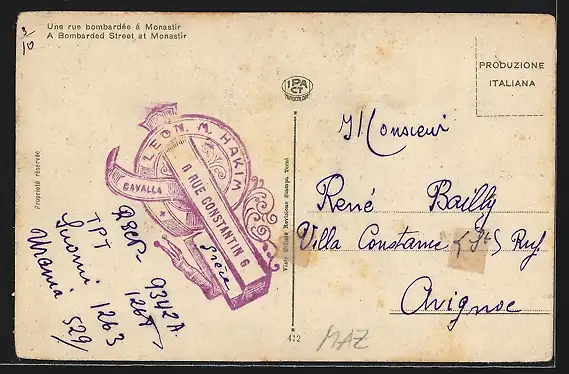 3/10
Une rue bombardée à Monastir
A Bombarded Street at Monastir
PRODUZIONE
ITALIANA
IPA
CT
Propriété réservée
LEON. M. HAKIM
CAVALLA
RUE CONSTANTIN 6
Grèce
9342A.
TPT 126A
Suomi 1263
Urania 529/
Visto Ufficio Revisione Stampa Terni
412
MAZ
Monsieur
René Bailly
Villa Constance
Avignon